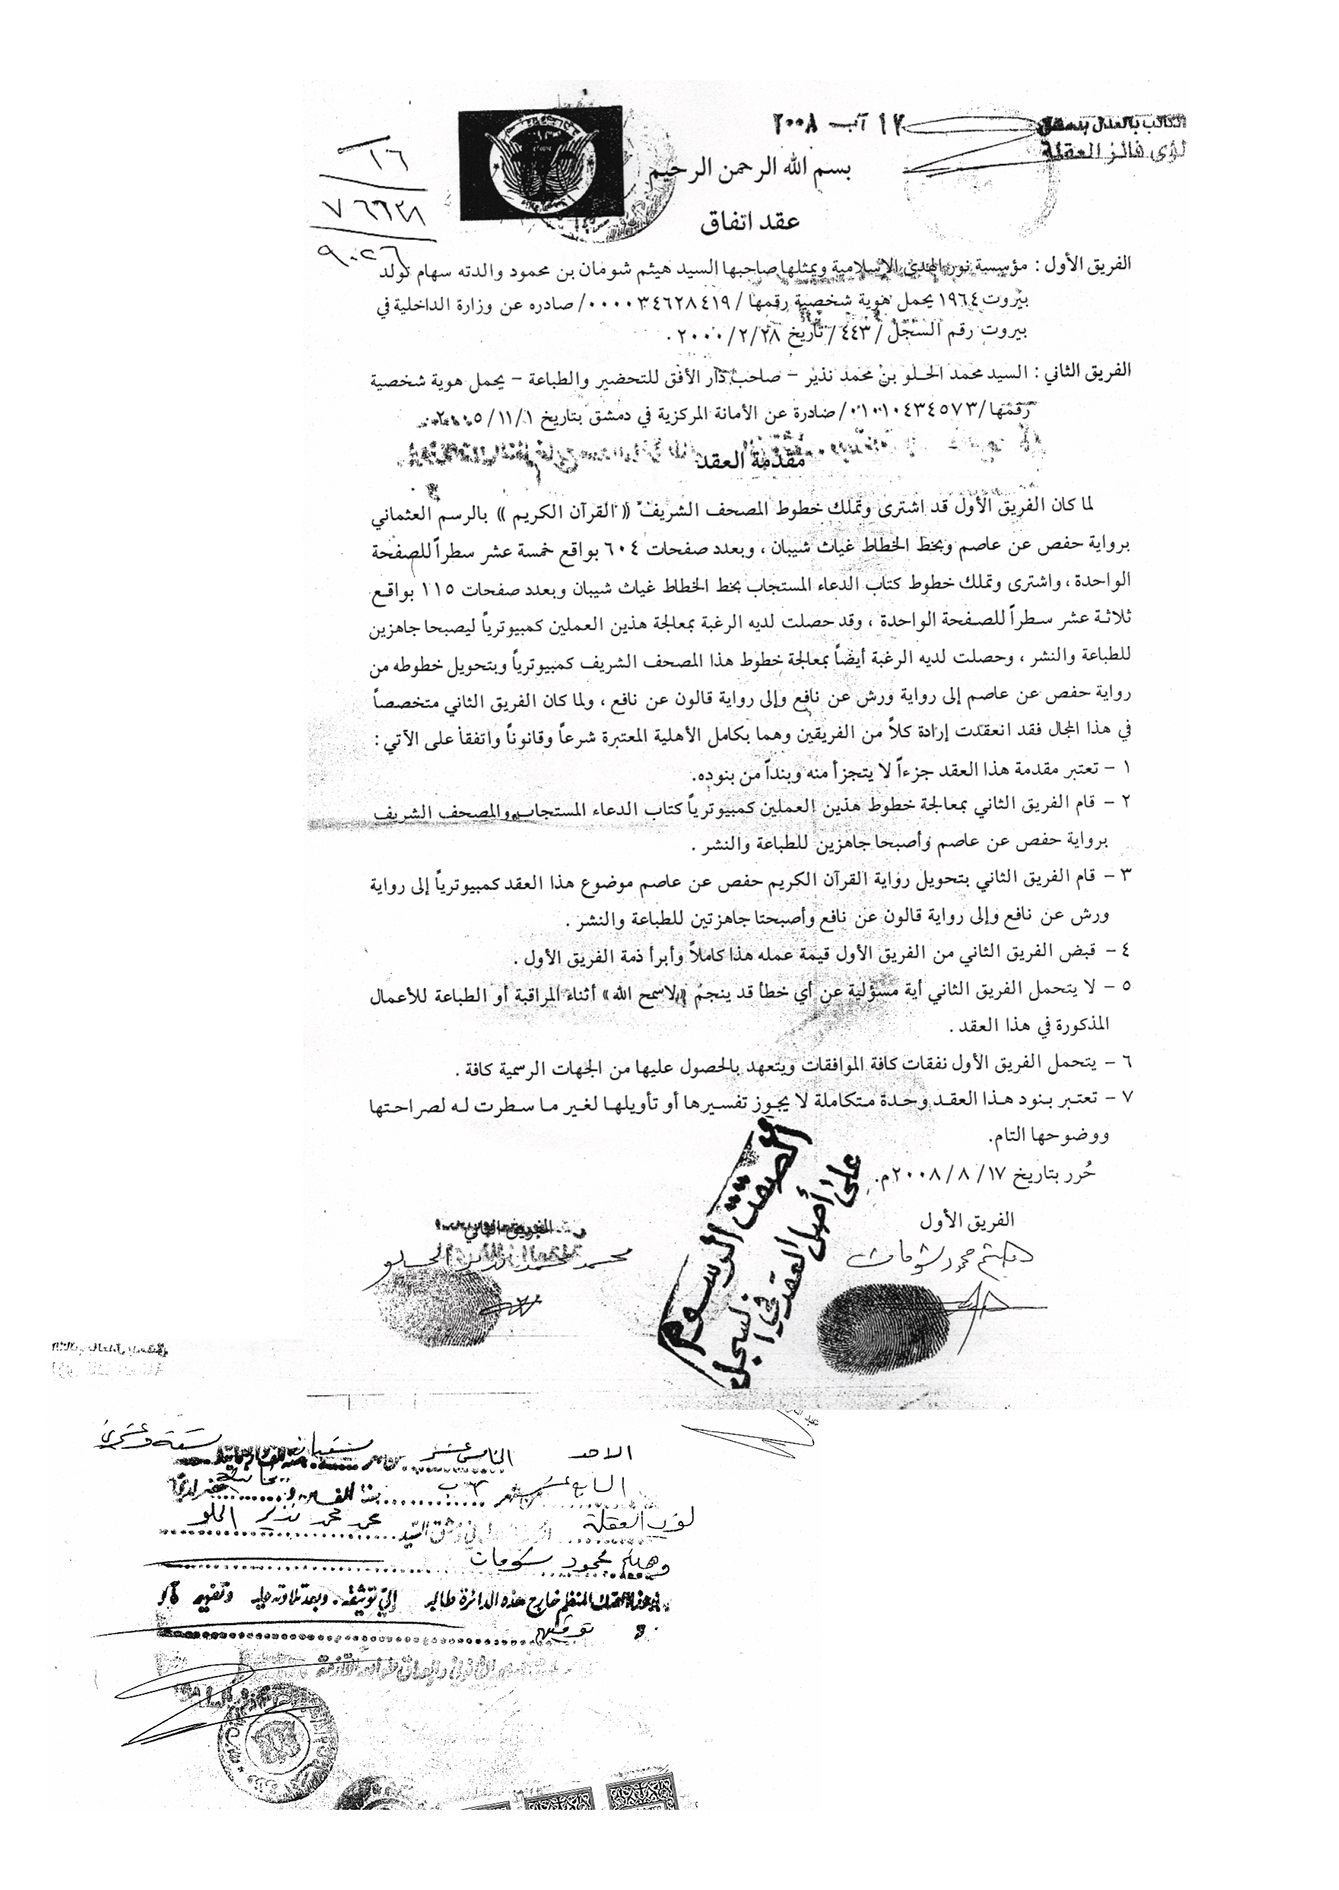 الكاتب بالعدل بدمشق
لؤي فائز العقلة
١٧ آب ٢٠٠٨
١٦
٧٦٦٢٨
بسم الله الرحمن الرحيم
عقد اتفاق
الفريق الأول : مؤسسة نور الهدى الإسلامية ويمثلها صاحبها السيد هيثم شومان بن محمود والدته سهام تولد
بيروت ١٩٦٤ يحمل هوية شخصية رقمها /٠٠٠٠٣٤٦٢٨٤١٩/ صادره عن وزارة الداخلية في
بيروت رقم السجل /٤٤٣/ تاريخ ٢٠٠٠/٢/٢٨ .
الفريق الثاني : السيد محمد الحلو بن محمد نذير – صاحب دار الأفق للتحضير والطباعة – يحمل هوية شخصية
رقمها /٠١٠١٠٤٣٤٥٧٣/ صادرة عن الأمانة المركزية في دمشق بتاريخ ٢٠٠٥/١١/١
مقدمة العقد
لما كان الفريق الأول قد اشترى وتملك خطوط المصحف الشريف (( القرآن الكريم )) بالرسم العثماني
برواية حفص عن عاصم وبخط الخطاط غياث شيبان ، وبعدد صفحات ٦٠٤ بواقع خمسة عشر سطراً للصفحة
الواحدة ، واشترى وتملك خطوط كتاب الدعاء المستجاب بخط الخطاط غياث شيبان وبعدد صفحات ١١٥ بواقع
ثلاثة عشر سطراً للصفحة الواحدة ، وقد حصلت لديه الرغبة بمعالجة هذين العملين كمبيوترياً ليصبحا جاهزين
للطباعة والنشر ، وحصلت لديه الرغبة أيضاً بمعالجة خطوط هذا المصحف الشريف كمبيوترياً وبتحويل خطوطه من
رواية حفص عن عاصم إلى رواية ورش عن نافع وإلى رواية قالون عن نافع ، ولما كان الفريق الثاني متخصصاً
في هذا المجال فقد انعقدت إرادة كلاً من الفريقين وهما بكامل الأهلية المعتبرة شرعاً وقانوناً واتفقا على الآتي :
١ – تعتبر مقدمة هذا العقد جزءاً لا يتجزأ منه وبنداً من بنوده.
٢ – قام الفريق الثاني بمعالجة خطوط هذين العملين كمبيوترياً كتاب الدعاء المستجاب والمصحف الشريف
برواية حفص عن عاصم وأصبحا جاهزين للطباعة والنشر .
٣ – قام الفريق الثاني بتحويل رواية القرآن الكريم حفص عن عاصم موضوع هذا العقد كمبيوترياً إلى رواية
ورش عن نافع وإلى رواية قالون عن نافع وأصبحتا جاهزتين للطباعة والنشر .
٤ – قبض الفريق الثاني من الفريق الأول قيمة عمله هذا كاملاً وأبرأ ذمة الفريق الأول .
٥ – لا يتحمل الفريق الثاني أية مسؤلية عن أي خطأ قد ينجم ((لاسمح الله)) أثناء المراقبة أو الطباعة للأعمال
المذكورة في هذا العقد .
٦ – يتحمل الفريق الأول نفقات كافة الموافقات ويتعهد بالحصول عليها من الجهات الرسمية كافة .
٧ – تعتبر بنود هذا العقد وحدة متكاملة لا يجوز تفسيرها أو تأويلها لغير ما سطرت له لصراحتها
ووضوحها التام.
حُرر بتاريخ ٢٠٠٨/٨/١٧م.
الفريق الأول
الفريق الثاني
هيثم محمود شومان
محمد محمد نذير الحلو
ألصقت الرسوم
على أصل العقد في
السجل
الاحد الخامس عشر من شعبان سنة وعشرين
السابع عشر شهر آب
لؤي العقلة السيد محمد محمد نذير الحلو
وهيثم محمود شومان
المنظم خارج هذه الدائرة طالبا إلي توثيقه . وبعد تلاوته عليه وتفهيمه